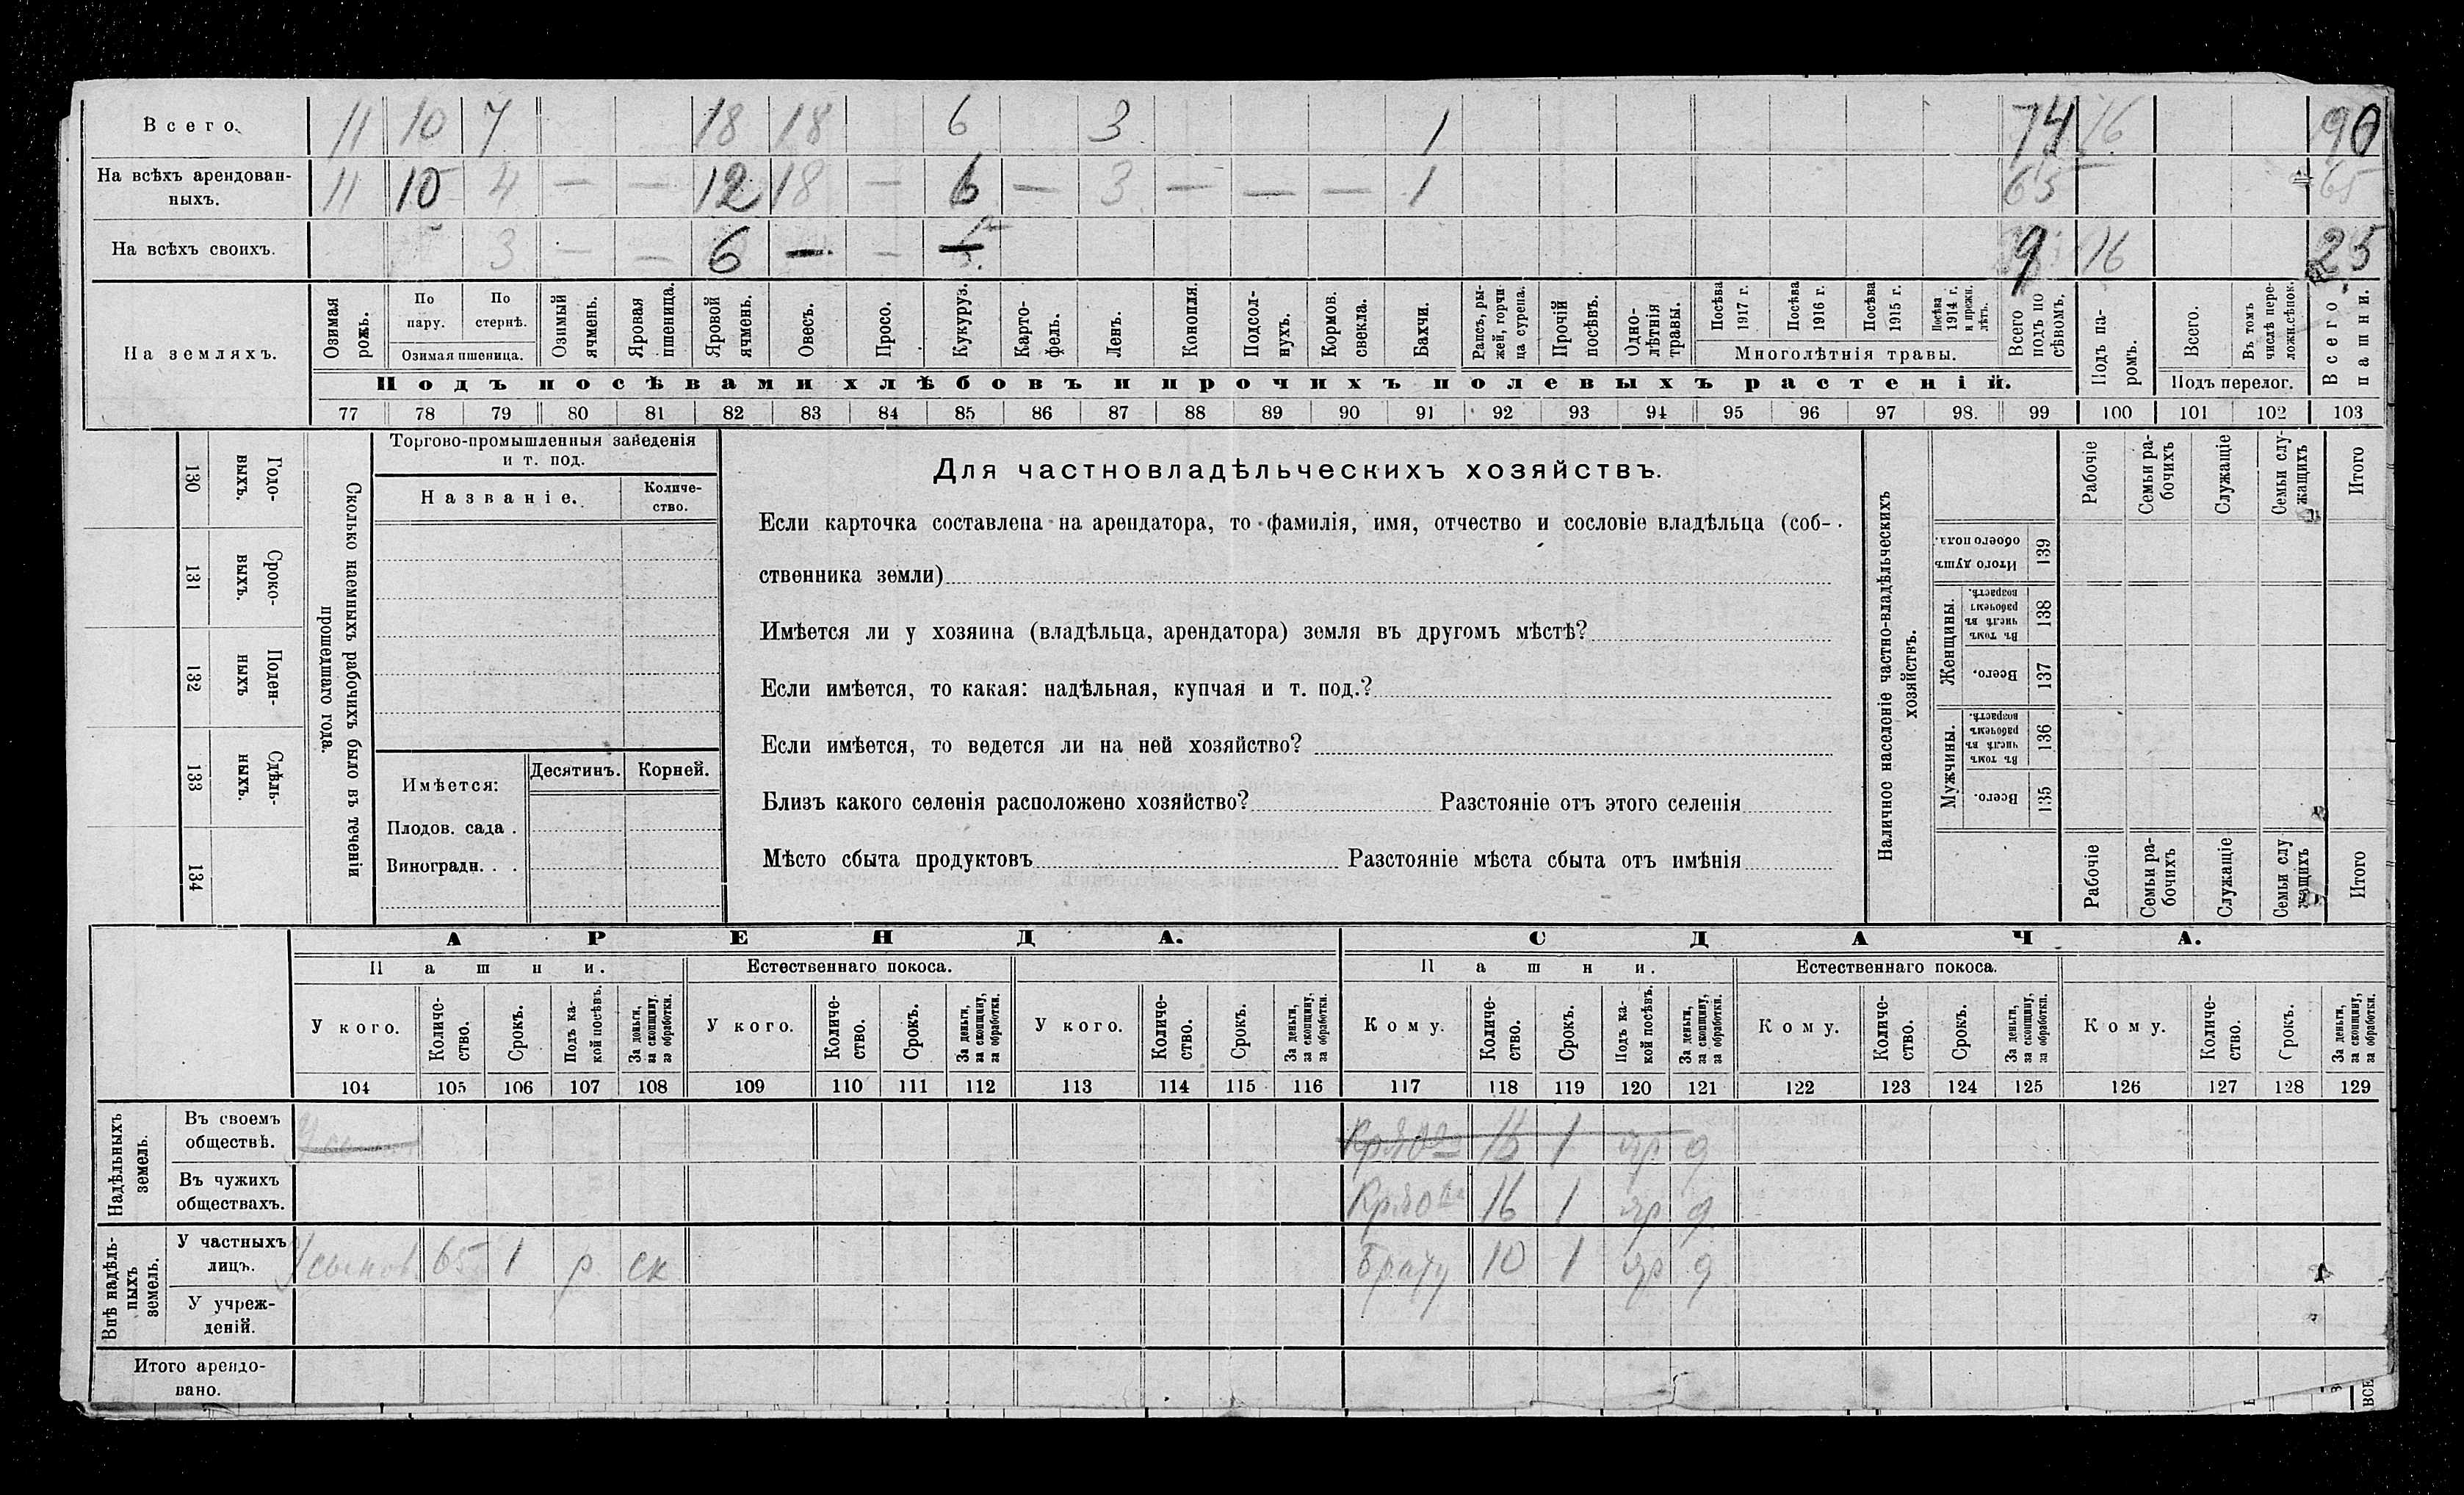 Всего. 11 10 7 18 18 6 3 1 74 16 90
На всѣхъ арендован-
ныхъ. 11 10 4 — — 12 18 — 6 — 3 — — — 1 65 65
На всѣхъ своихъ. 3 — — 6 — — — 9 16 25
На земляхъ.
Озимая рожь.
По пару.
По стернѣ.
Озимая пшеница.
Озимый ячмень.
Яровая пшеница.
Яровой ячмень.
Овесъ.
Просо.
Кукуруз.
Карто-
фель.
Ленъ.
Конопля.
Подсол-
нухъ.
Кормов. свекла.
Бахчи.
Рапсъ, ры-
жей, горчи-
ца сурепа.
Прочій посѣвъ.
Одно-
лѣтнія травы.
Посѣва 1917 г.
Посѣва 1916 г.
Посѣва 1915 г.
Посѣва 1914 г. и прежн. лѣтъ.
Многолѣтнія травы.
Всего подъ по
сѣвомъ.
Подъ па-
ромъ.
Всего.
Въ томъ числѣ пере-
ложн.сѣнок.
Подъ перелог.
Всего пашни.
Подъ посѣвами хлѣбовъ и прочихъ полевыхъ растеній.
77 78 79 80 81 82 83 84 85 86 87 88 89 90 91 92 93 94 95 96 97 98. 99 100 101 102 103
130 Годо-
выхъ.
131 Сроко-
выхъ.
132 Поден-
ныхъ
133 Сдѣль-
ныхъ.
134
Сколько наемныхъ рабочихъ было въ теченіи
прошедшаго года.
Торгово-промышленныя заведенія
и т. под.
Названіе. Количе-
ство.
Имѣется: Десятинъ. Корней.
Плодов. сада .
Виноградн. . .
Для частновладѣльческихъ хозяйствъ.
Если карточка составлена на арендатора, то фамилія, имя, отчество и сословіе владѣльца (соб-
ственника земли)
Имѣется ли у хозяина (владѣльца, арендатора) земля въ другомъ мѣстѣ?
Если имѣется, то какая: надѣльная, купчая и т. под.?
Если имѣется, то ведется ли на ней хозяйство?
Близъ какого селенія расположено хозяйство? Разстояніе отъ этого селенія
Мѣсто сбыта продуктовъ Разстояніе мѣста сбыта отъ имѣнія
Наличное населеніе частно-владѣльческихъ
хозяйствъ.
Рабочіе
Семьи ра-
бочихъ
Служащіе
Семьи слу-
жащихъ
Итого
Итого душъ обоего пола. 139
Женщины.
Въ томъ числѣ въ рабочемъ возрастѣ. 138
Всего. 137
Мужчины.
Въ томъ числѣ въ рабочемъ возрастѣ. 136
Всего. 135
Рабочіе
Семьи ра-
бочихъ
Служащіе
Семьи слу
жащихъ
Итого
АРЕНДА. СДАЧА.
Пашни. Естественнаго покоса. Пашни. Естественнаго покоса.
У кого. Количе-
ство. Срокъ. Подъ ка-
кой посѣвъ. За деньги, за скопщину, за обработки.
У кого. Количе-
ство. Срокъ. За деньги, за скопщину, за обработки.
У кого. Количе-
ство. Срокъ. За деньги, за скопщину, за обработки.
Кому. Количе-
ство. Срокъ. Подъ ка-
кой посѣвъ. За деньги, за скопщину, за обработки.
Кому. Количе-
ство. Срокъ. За деньги, за скопщину, за обработки.
Кому. Количе-
ство. Срокъ. За деньги, за скопщину, за обработки.
104 105 106 107 108 109 110 111 112 113 114 115 116 117 118 119 120 121 122 123 124 125 126 127 128 129
Надѣльныхъ земель.
Въ своемъ
обществѣ. 1 яр д
Въ чужихъ
обществахъ. 16 1 яр д
Внѣ надѣль-
ныхъ земель.
У частныхъ
лицъ. У сынов. 65 1 р. ск Брату 10 1 яр д
У учреж-
деній.
Итого арендо-
вано.
ВСЕ